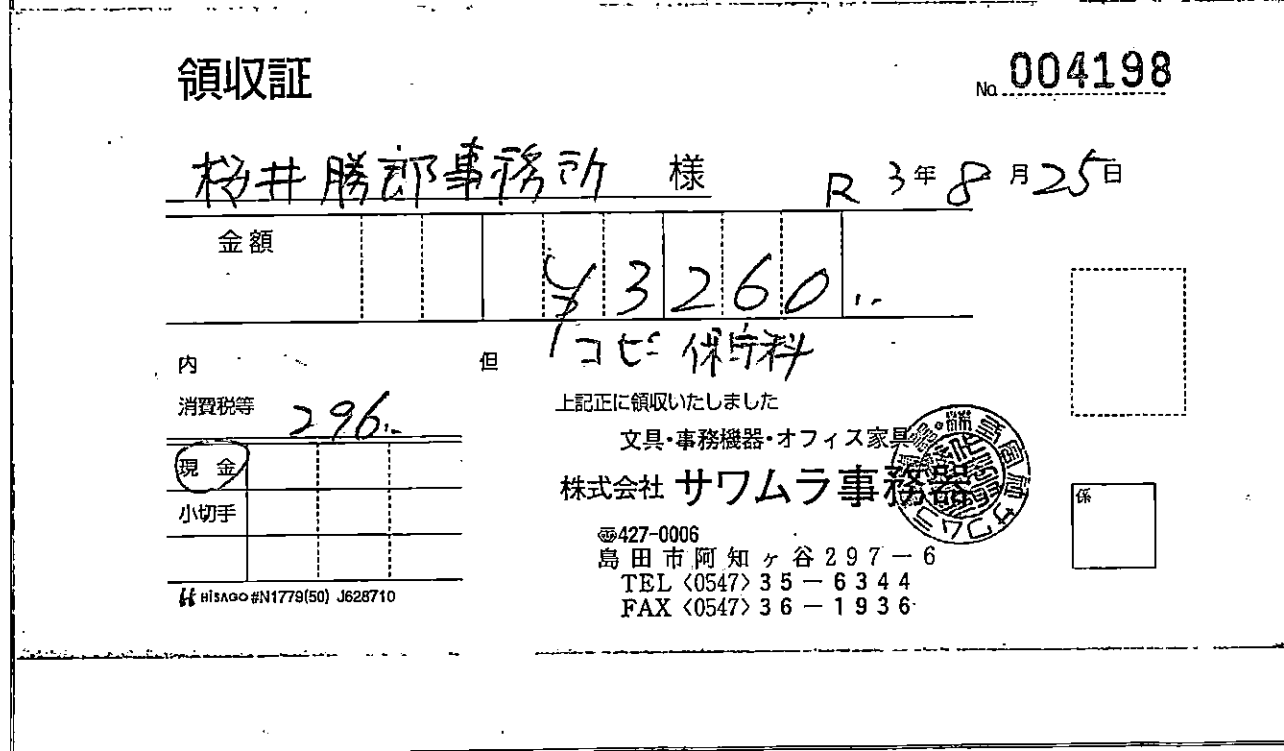 領収証
No. 004198
桜井勝郎事務所 様
R 3年 8月 25日
金額
¥3260..
内
但 コピー保守料
消費税等 296..
上記正に領収いたしました
現金
小切手
文具・事務機器・オフィス家具
株式会社 サワムラ事務器
〠427-0006
島田市阿知ヶ谷297-6
TEL〈0547〉35-6344
FAX〈0547〉36-1936
係
HISAGO #N1779(50) J628710